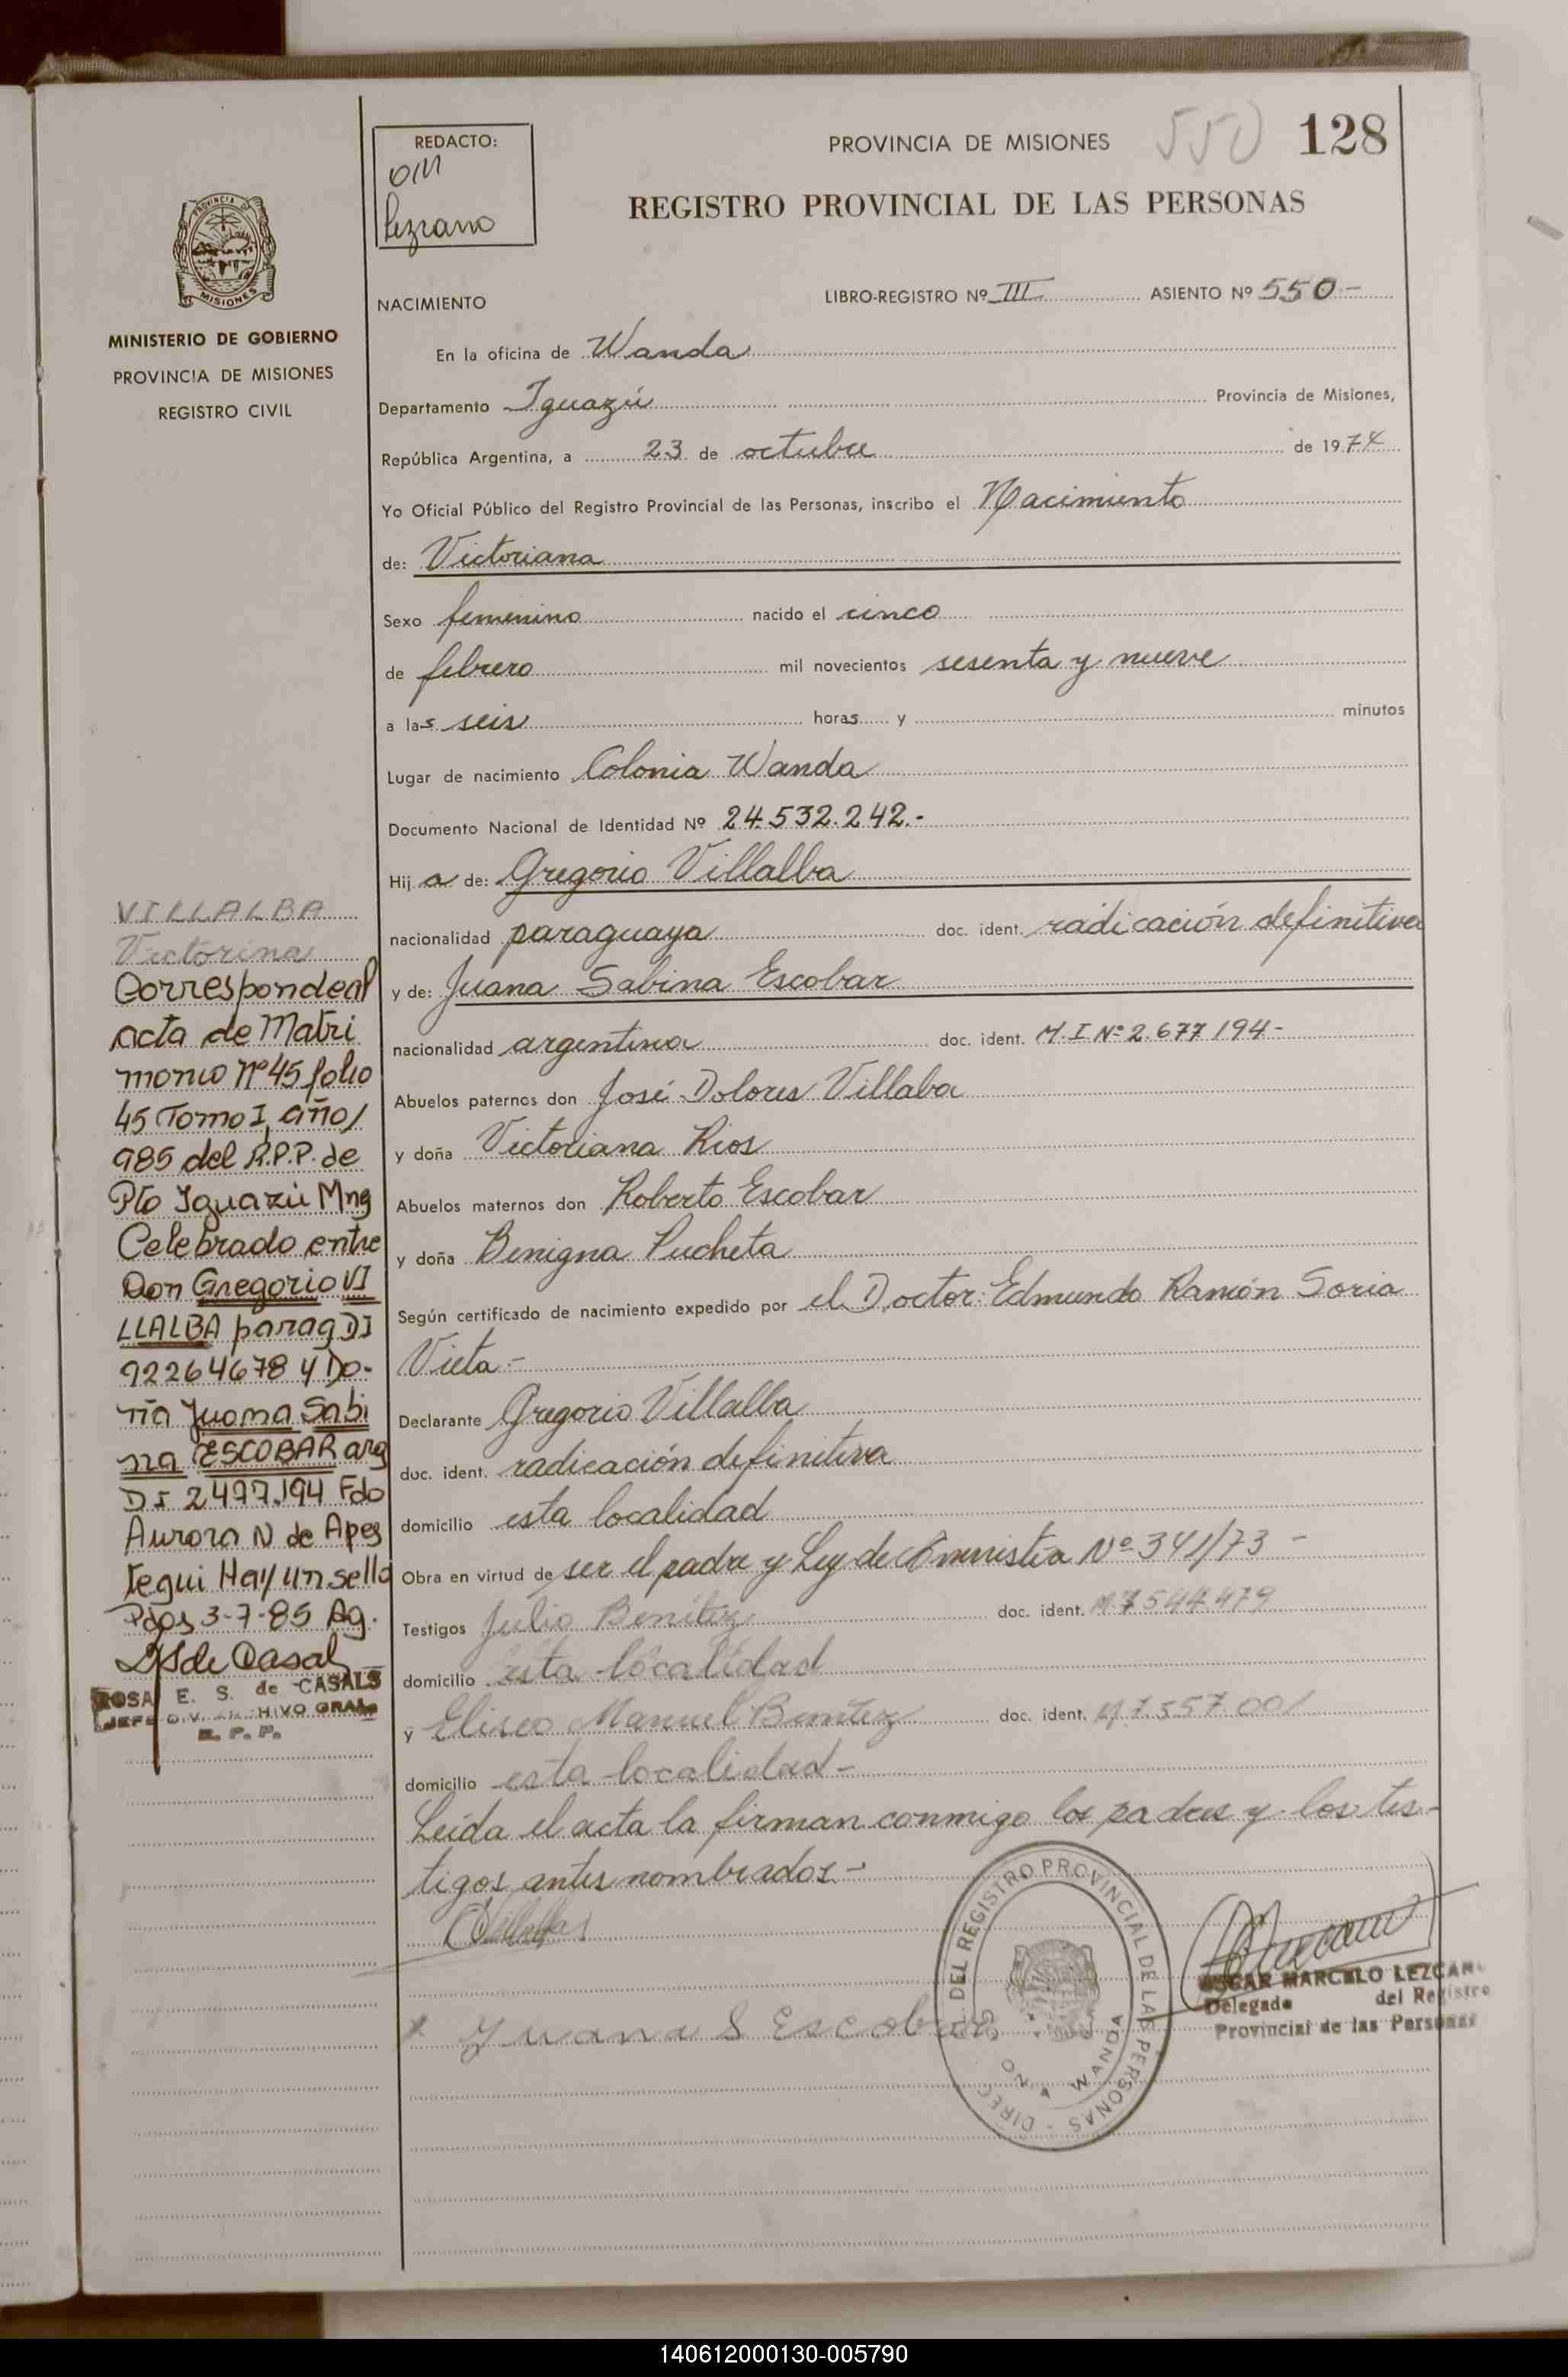 REDACTO:
OM
Lezcano
PROVINCIA DE MISIONES
550
128
REGISTRO PROVINCIAL DE LAS PERSONAS
PROVINCIA DE
MISIONES
MINISTERIO DE GOBIERNO
PROVINCIA DE MISIONES
REGISTRO CIVIL
NACIMIENTO
LIBRO-REGISTRO Nº III ASIENTO Nº 550-
En la oficina de Wanda
Departamento Iguazú Provincia de Misiones,
República Argentina, a 23 de octubre de 1974
Yo Oficial Público del Registro Provincial de las Personas, inscribo el Nacimiento
de: Victoriana
Sexo femenino nacido el cinco
de febrero mil novecientos sesenta y nueve
a las seis horas y minutos
Lugar de nacimiento Colonia Wanda
Documento Nacional de Identidad Nº 24.532.242.-
Hij a de: Gregorio Villalba
nacionalidad paraguaya doc. ident. radicación definitiva
y de: Juana Sabina Escobar
nacionalidad argentina doc. ident. M.I Nº 2.677.194-
Abuelos paternos don José Dolores Villaba
y doña Victoriana Rios
Abuelos maternos don Roberto Escobar
y doña Benigna Pucheta
Según certificado de nacimiento expedido por el Doctor: Edmundo Ramón Soria
Vieta.-
Declarante Gregorio Villalba
doc. ident. radicación definitiva
domicilio esta localidad
Obra en virtud de ser el padre y Ley de Amnistía Nº 341/73 -
Testigos Julio Benítez doc. ident. M.7.544.479
domicilio esta localidad
y Eliseo Manuel Benítez doc. ident. M.7.557.001
domicilio esta localidad-
Leída el acta la firman conmigo los padres y los tes-
tigos antes nombrados-
VILLALBA
Victorina
Corresponde al
acta de Matri
monio Nº 45 folio
45 Tomo I, año 1
985 del R.P.P. de
Pto Iguazú Mng
Celebrado entre
Don Gregorio VI
LLALBA parag DI
92264678 y Do-
ña Juana Sabi
na ESCOBAR arg
DI 2477.194 Fdo
Aurora N de Apes
tegui Hay un sello
Pdas 3-7-85 Ag.
ROSA E. S. de CASALS
JEFE DIV. ARCHIVO GRAL.
R. P. P.
Villalba
Juana S Escobar
DIREC. DEL REGISTRO PROVINCIAL DE LAS PERSONAS
WANDA
OSCAR MARCELO LEZCANO
Delegado del Registro
Provincial de las Personas
140612000130-005790